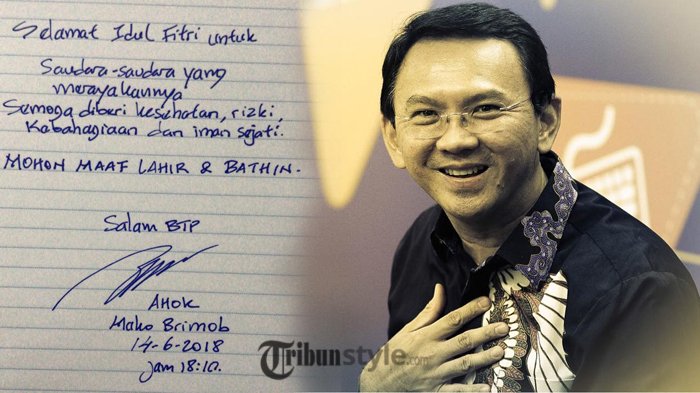 Selamat Idul Fitri untuk
Saudara-saudara yang
merayakannya
Semoga diberi kesehatan, rizki,
Kebahagiaan dan iman sejati.
MOHON MAAF LAHIR & BATHIN.
Salam BTP
AHOK
Mako Brimob
14-6-2018
Jam 18:10.
Tribunstyle.com